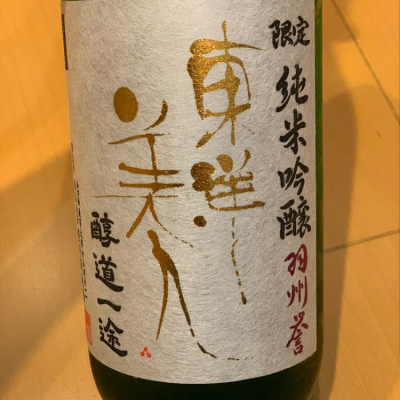 限定 純米吟醸 羽州誉
東洋
美人
醇道一途